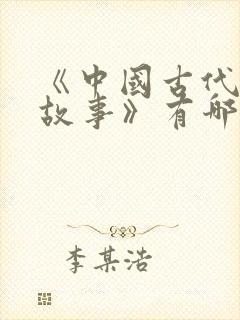 《中國古代
故事》有哪
李某浩